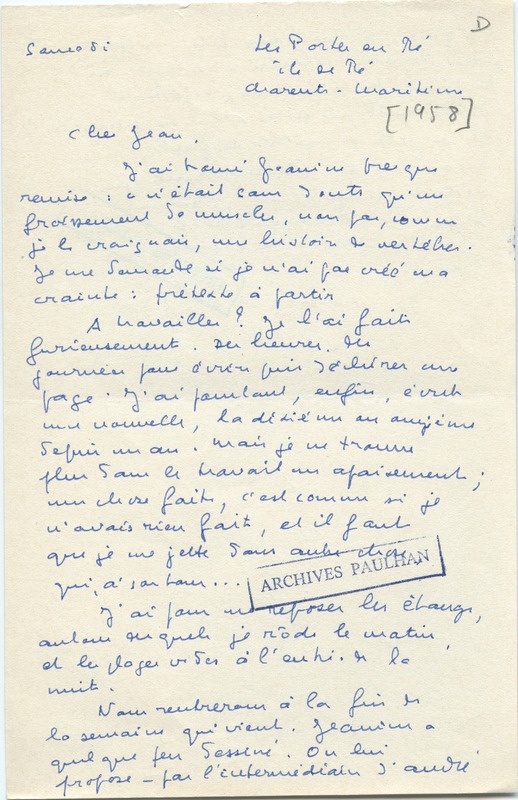 D
Samedi
Les Portes en Ré
île de Ré
Charente-Maritime
[1958]
Cher Jean,
J'ai trouvé Jeanine presque
remise : ce n'était sans doute qu'un
froissement de muscles, non pas, comme
je le craignais, une histoire de vertèbre.
Je me demande si je n'ai pas créé ma
crainte : prétexte à partir
A travailler ? Je l'ai fait
furieusement. Des heures. Des
journées pour écrire puis déchirer une
page. J'ai pourtant, enfin, écrit
une nouvelle, la dixième ou onzième
depuis un an. Mais je ne trouve
plus dans le travail un apaisement ;
une chose faite, c'est comme si je
n'avais rien fait, et il faut
que je me jette dans autre chose,
qui, à son tour...
ARCHIVES PAULHAN
J'ai pour me reposer les étangs,
autour desquels je rôde le matin,
et les plages vides à l'entrée de la
nuit.
Nous rentrerons à la fin de
la semaine qui vient. Jeanine a
quelque peu dessiné. On lui
propose – par l'intermédiaire d'André